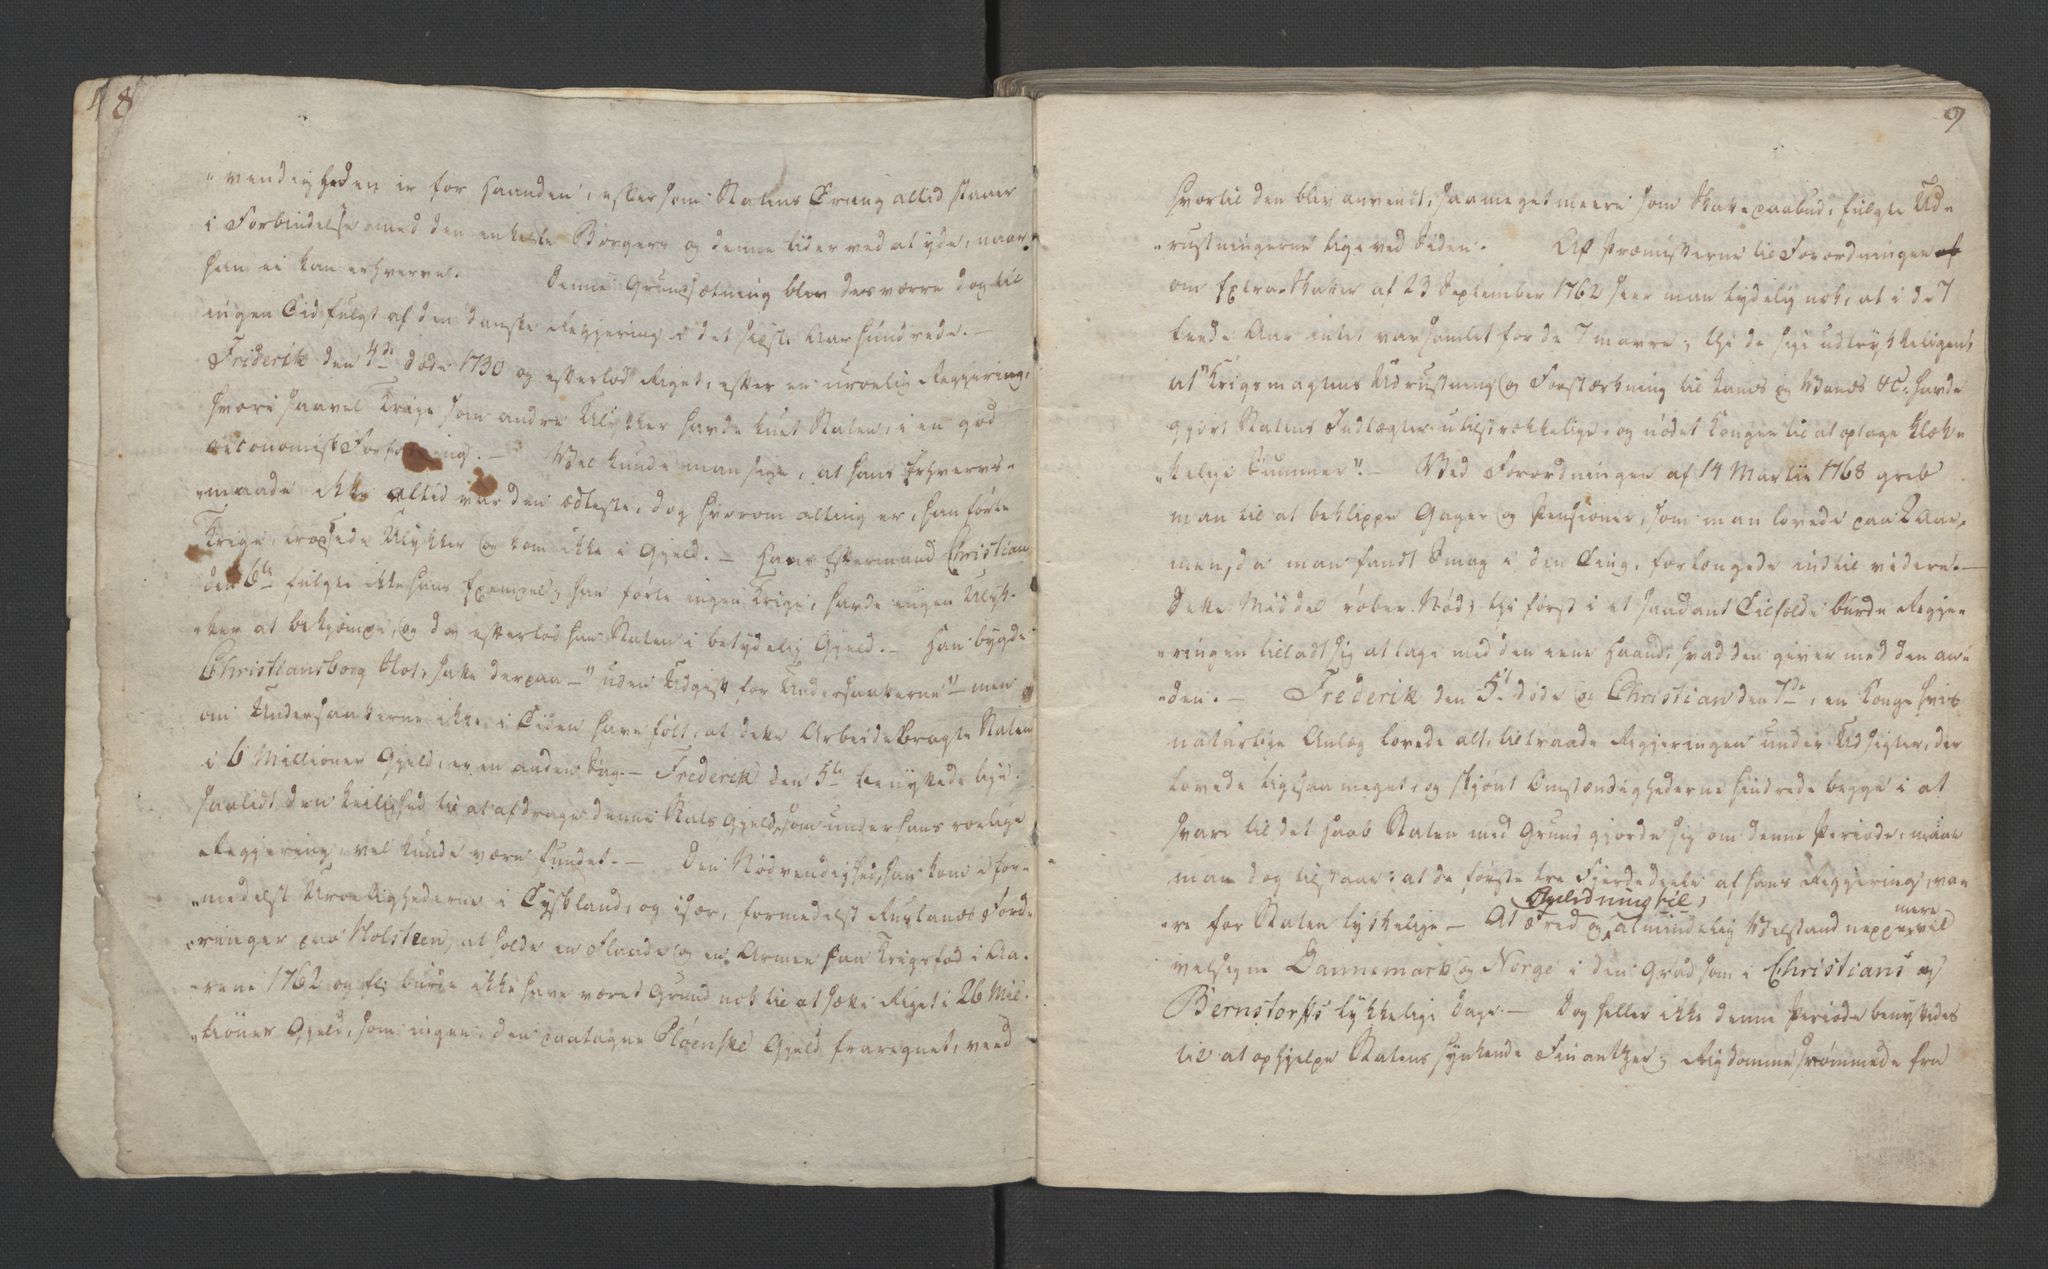 8
„vendigheden er for Haanden, eftersom Statens Trang altid staaer
i Forbindelse med den enkelte Borgers og denne lider ved at yde, naar
han ei kan erhverve. Denne Grundsætning blev desværre dog til
ingen Tid fulgt af den danske Regjering i det sidste Aarhundrede. —
Friderik den 4de døde 1730 og efterlod Riget, efter en uroelig Regjering,
hvori saavel Krige som andre Ulykker havde kuet Staten, i en god
oeconomisk Forfatning. — Vel kunde man sige, at hans Erhvervs-
„maade ikke altid var den ædleste, dog hvorom alting er, han førte
Krige, trodsede Ulykker og kom ikke i Gjeld. — Hans Eftermand Christian
den 6te fulgte ikke hans Exempel; han førte ingen Krige, havde ingen Ulyk-
„ker at bekjæmpe, og dog efterlod han Staten i betydelig Gjeld. — Han bygde
Christiansborg Slot, satte derpaa — "uden Udgift for Undersaatterne" — men
om Undersaatterne ikke i Tiden have følt, at dette Arbeide bragte Staten
i 6 Millioner Gjeld, er en anden Sag. — Frederik den 5te benyttede lige
saalidt den Leilighed til at afdrage denne Stats Gjeld, som under hans roelige
Regjering vel kunde være fundet. — Den Nødvendighed, han kom i for-
„medelst Uroelighederne i Tyskland, og især, formedelst Ruslands Ford-
„ringer paa Holsteen, at holde en Flaade og en Armee paa Krigsfod i Aa-
„rene 1762 og fl: burde ikke have været Grund nok til at sætte Riget i 26 Mil-
„lioner Gjeld, som ingen, den paatagne Pløenske Gjeld fraregnet, veed
9
hvortil den blev anvendt, saameget meere som Skattepaabud, fulgte Ud-
„rustningerne lige ved Siden. Af Præmisserne til Forordningen af
om Extra-Skatter af 23 September 1762 seer man tydelig nok, at i de 7
feede Aar intet var samlet for de 7 mavre; thi de sige udtrykkeligen,
at "Krigsmagtens Udrustning og Forstærkning til Lands og Vands &c. havde
gjort Statens Indtægter utilstrækkelige, og nødet Kongen til at optage klæk-
„kelige Summer". — Ved Forordningen af 14 Martii 1768 greb
man til at beklippe Gager og Pensioner, som man lovede paa 2 Aar,
men, da man fandt Smag i den Ting, forlængede indtil videre. —
Dette Middel røber Nød; thi først i et saadant Tilfælde burde Regje-
„ringen tilladt sig at tage med den eene Haand, hvad den giver med den an-
„den. — Frederik den 5te døde og Christian den 7de, en Konge hvis
naturlige Anlæg lovede alt, tiltraade Regjeringen under Udsigter, der
lovede ligesaa meget, og skjønt Omstændighederne hindrede begge i at
svare til det Haab Staten med Grund gjorde sig om denne Periode, maae
man dog tilstaae: at de første tre Fjerdedeele af hans Regjering, va-
„re for Staten lykkelige — At Fred og almindelig Velstand neppe mere vil
velsigne Dannemark og Norge i den Grad som i Christians og
Bernstorfs lykkelige Dage. — Dog heller ikke denne Periode benyttedes
til at ophjelpe Statens synkende Finantzer; Rigdomme strømmede fra